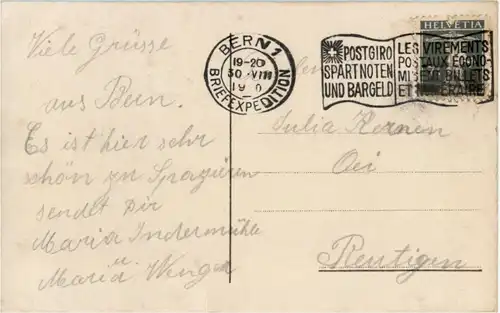 Viele Grüsse
aus Bern.
Es ist hier sehr
schön zu Spazieren
sendet Dir
Maria Indermühle
u
Maria Wenger
BERN 1
19-20
30.VIII
BRIEFEXPEDITION
POSTGIRO
SPART NOTEN
UND BARGELD
LES VIREMENTS
POSTAUX ÉCONO-
MISENT BILLETS
ET NUMÉRAIRE
HELVETIA
Julia Kernen
Reutigen